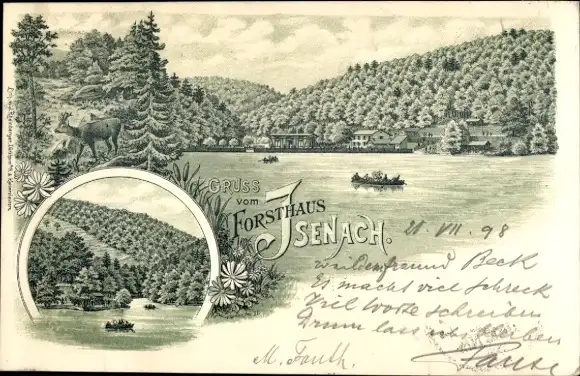 Gruss
vom
Forsthaus
Isenach.
21. VII. 98
Beck
Es macht viel Schreck
Viel Worte schreiben
Drum lass ich bleiben
M. Fauth.